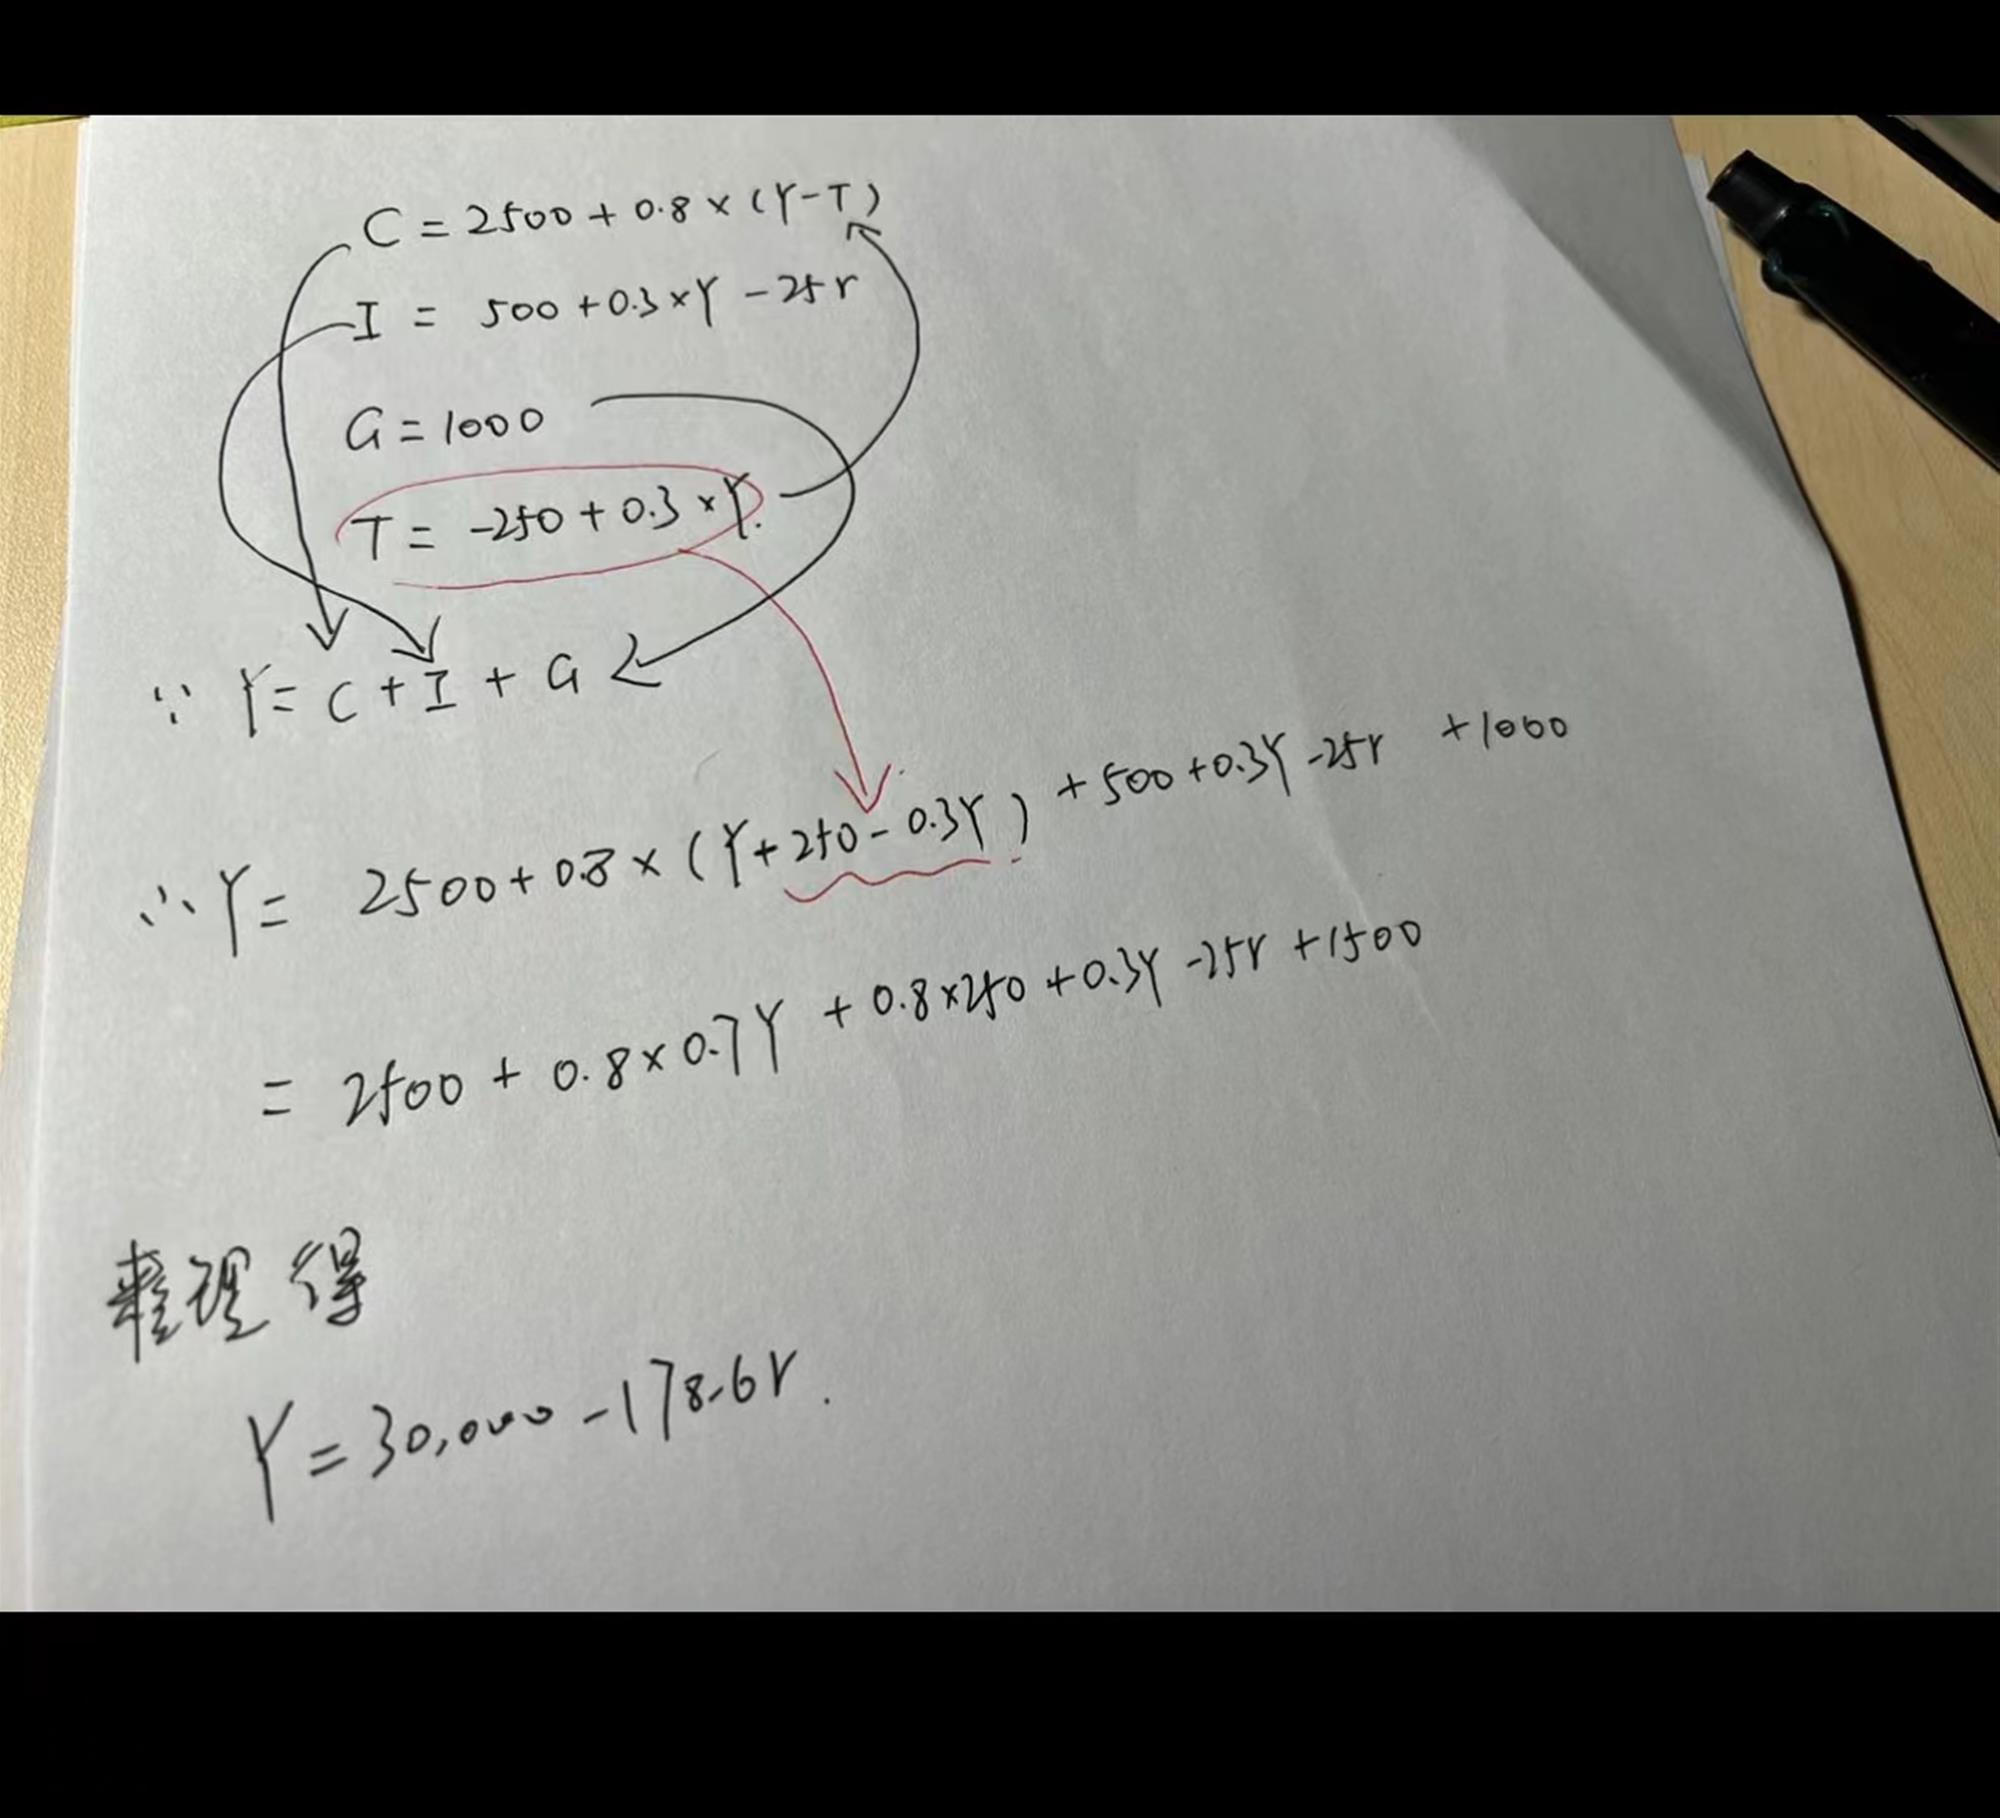 C = 2500 + 0.8 × (Y-T)
I = 500 + 0.3 × Y - 25r
G = 1000
T = -250 + 0.3 × Y.
∵ Y = C + I + G
∴ Y = 2500 + 0.8 × (Y + 250 - 0.3Y) + 500 + 0.3Y - 25r + 1000
= 2500 + 0.8 × 0.7Y + 0.8 × 250 + 0.3Y - 25r + 1500
整理得
Y = 30,000 - 178.6r.